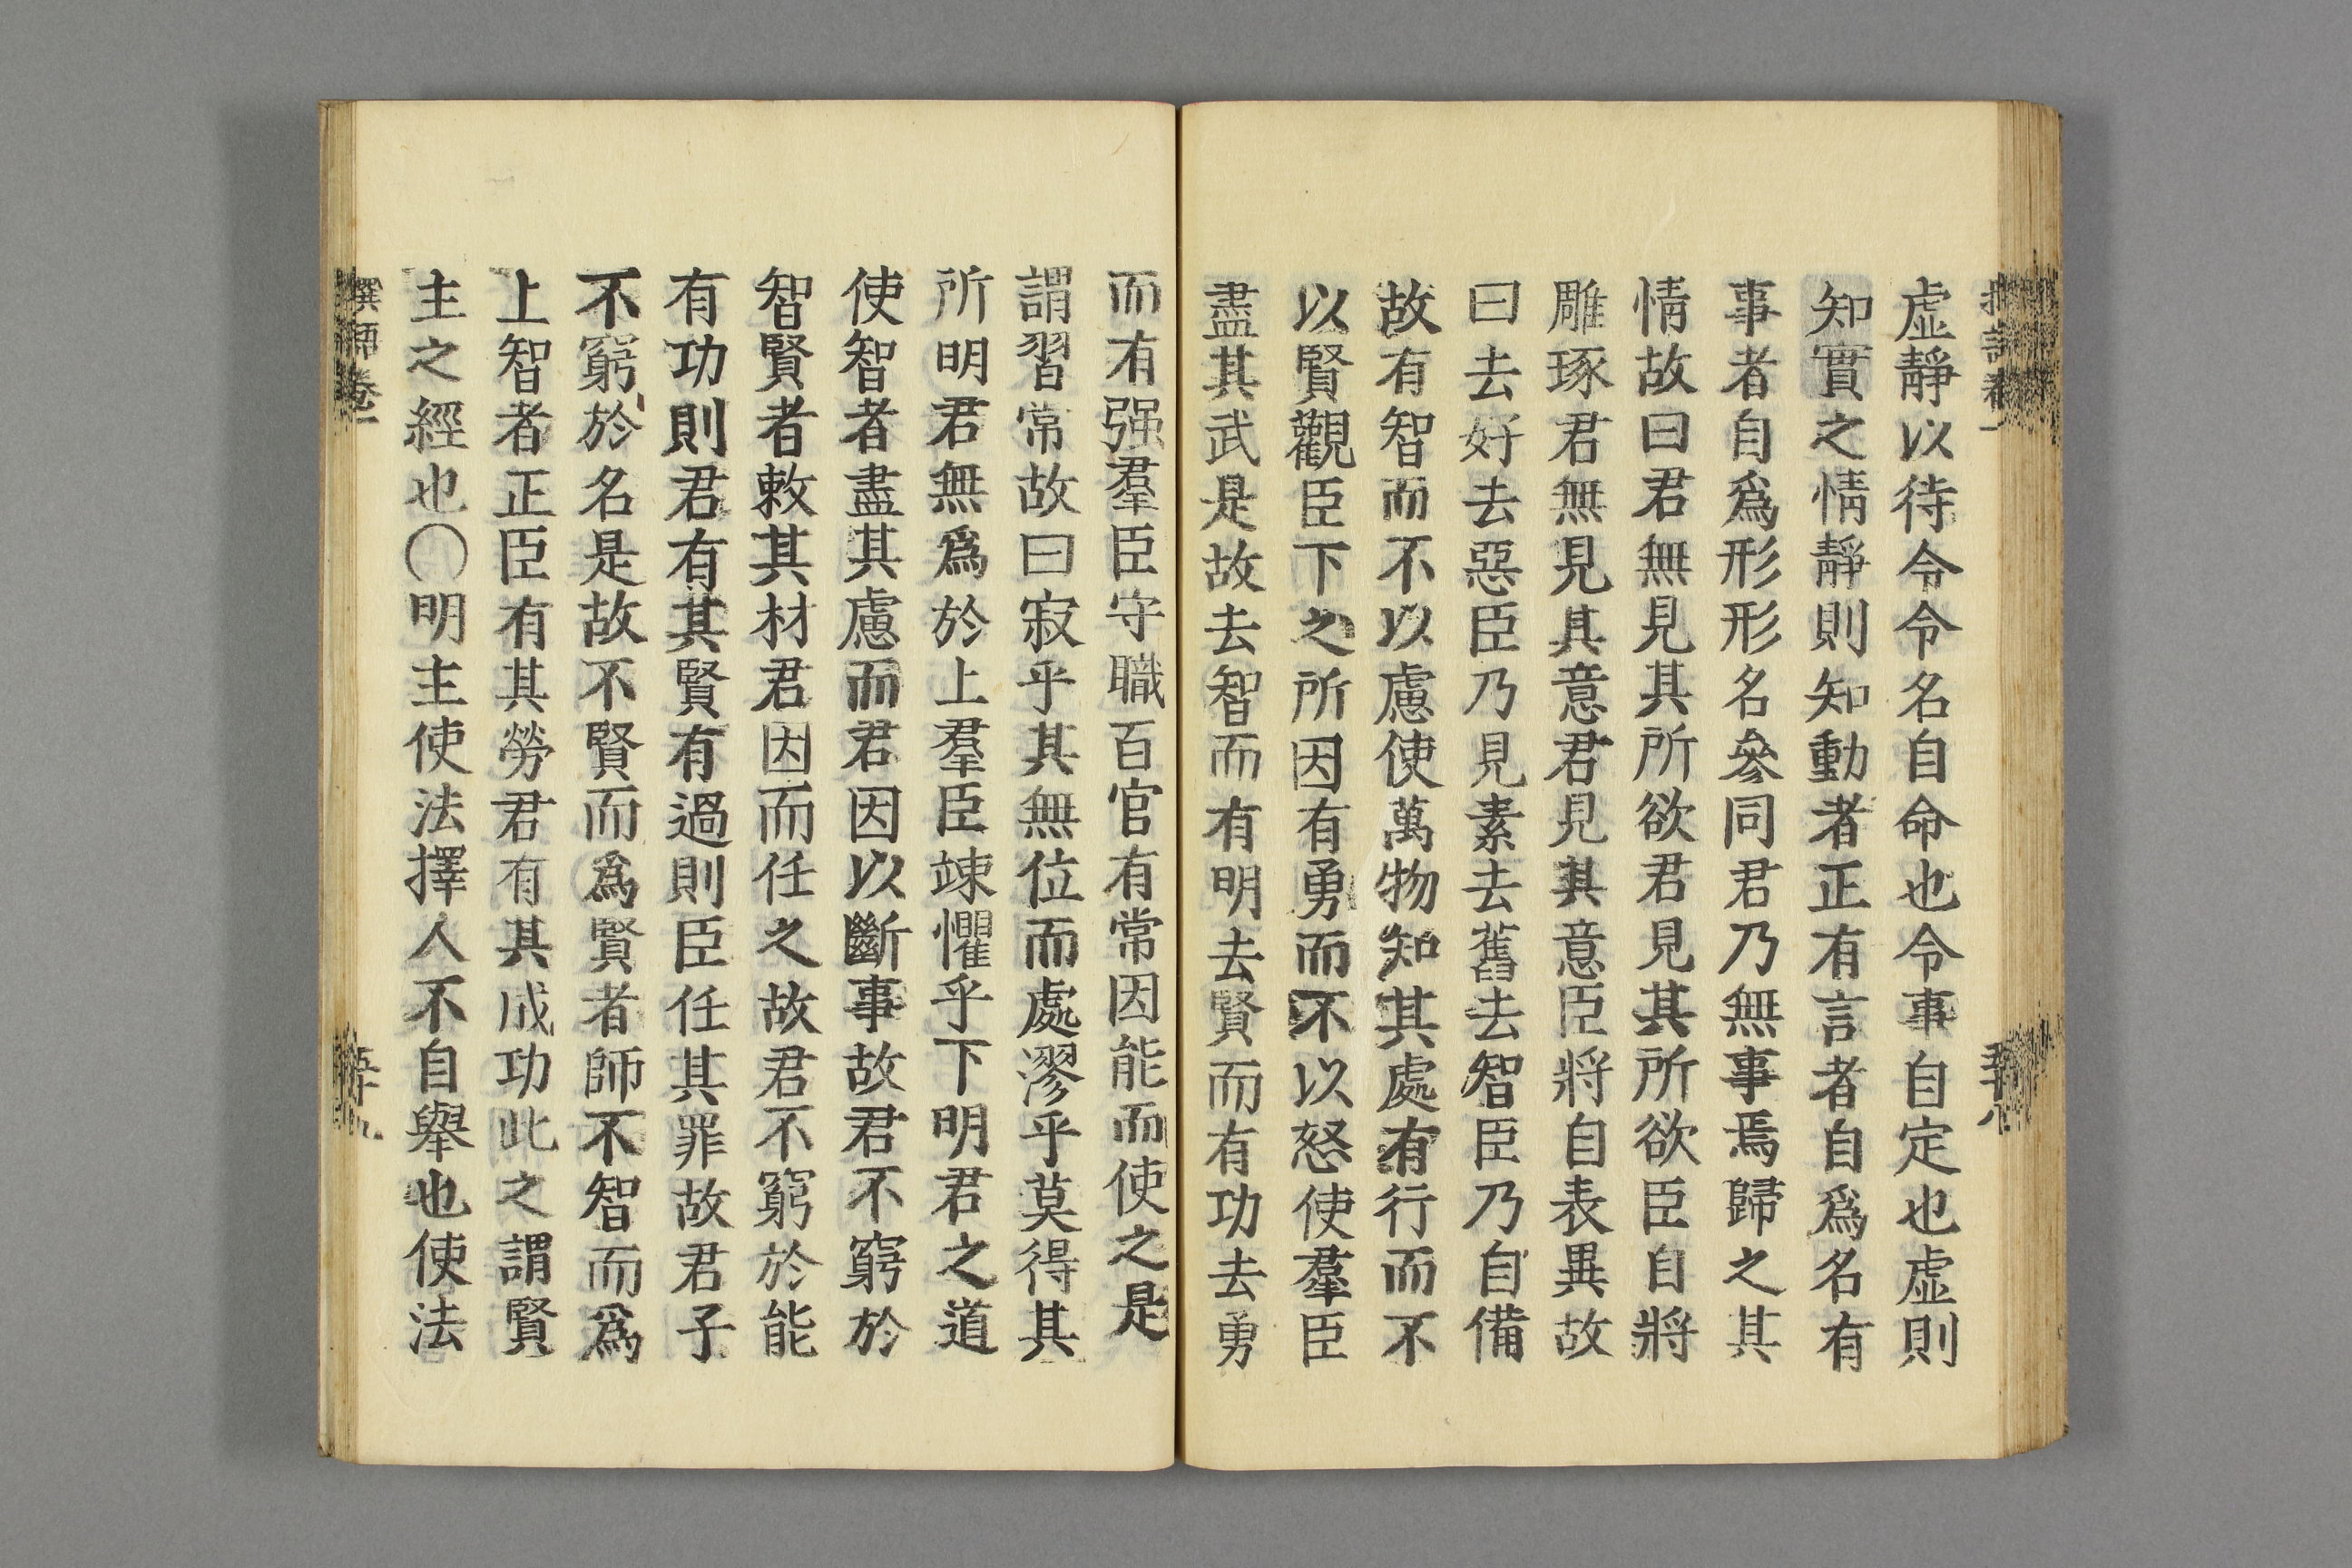 虛靜以待令令名自命也令事自定也虛則
知實之情靜則知動者正有言者自爲名有
事者自爲形形名參同君乃無事焉歸之其
情故曰君無見其所欲君見其所欲臣自將
雕琢君無見其意君見其意臣將自表異故
曰去好去惡臣乃見素去舊去智臣乃自備
故有智而不以慮使萬物知其處有行而不
以賢觀臣下之所因有勇而不以怒使羣臣
盡其武是故去智而有明去賢而有功去勇
而有强羣臣守職百官有常因能而使之是
謂習常故曰寂乎其無位而處漻乎莫得其
所明君無爲於上羣臣竦懼乎下明君之道
使智者盡其慮而君因以斷事故君不窮於
智賢者敕其材君因而任之故君不窮於能
有功則君有其賢有過則臣任其罪故君子
不窮於名是故不賢而爲賢者師不智而爲
上智者正臣有其勞君有其成功此之謂賢
主之經也○明主使法擇人不自舉也使法
卷一